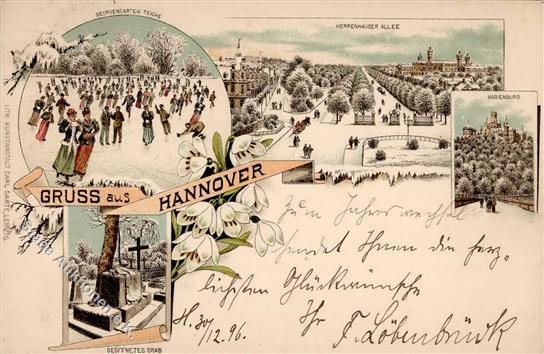 GEORGENGARTEN TEICHE
HERRENHÄUSER ALLEE
MARIENBURG
LITH. KUNSTANSTALT CARL GARTE, LEIPZIG.
GRUSS aus HANNOVER
Zum Jahreswechsel
sendet Ihnen die herz-
lichsten Glückwünsche
H. 30/12. 96. Ihr F. Löbenbrück
GEÖFFNETES GRAB